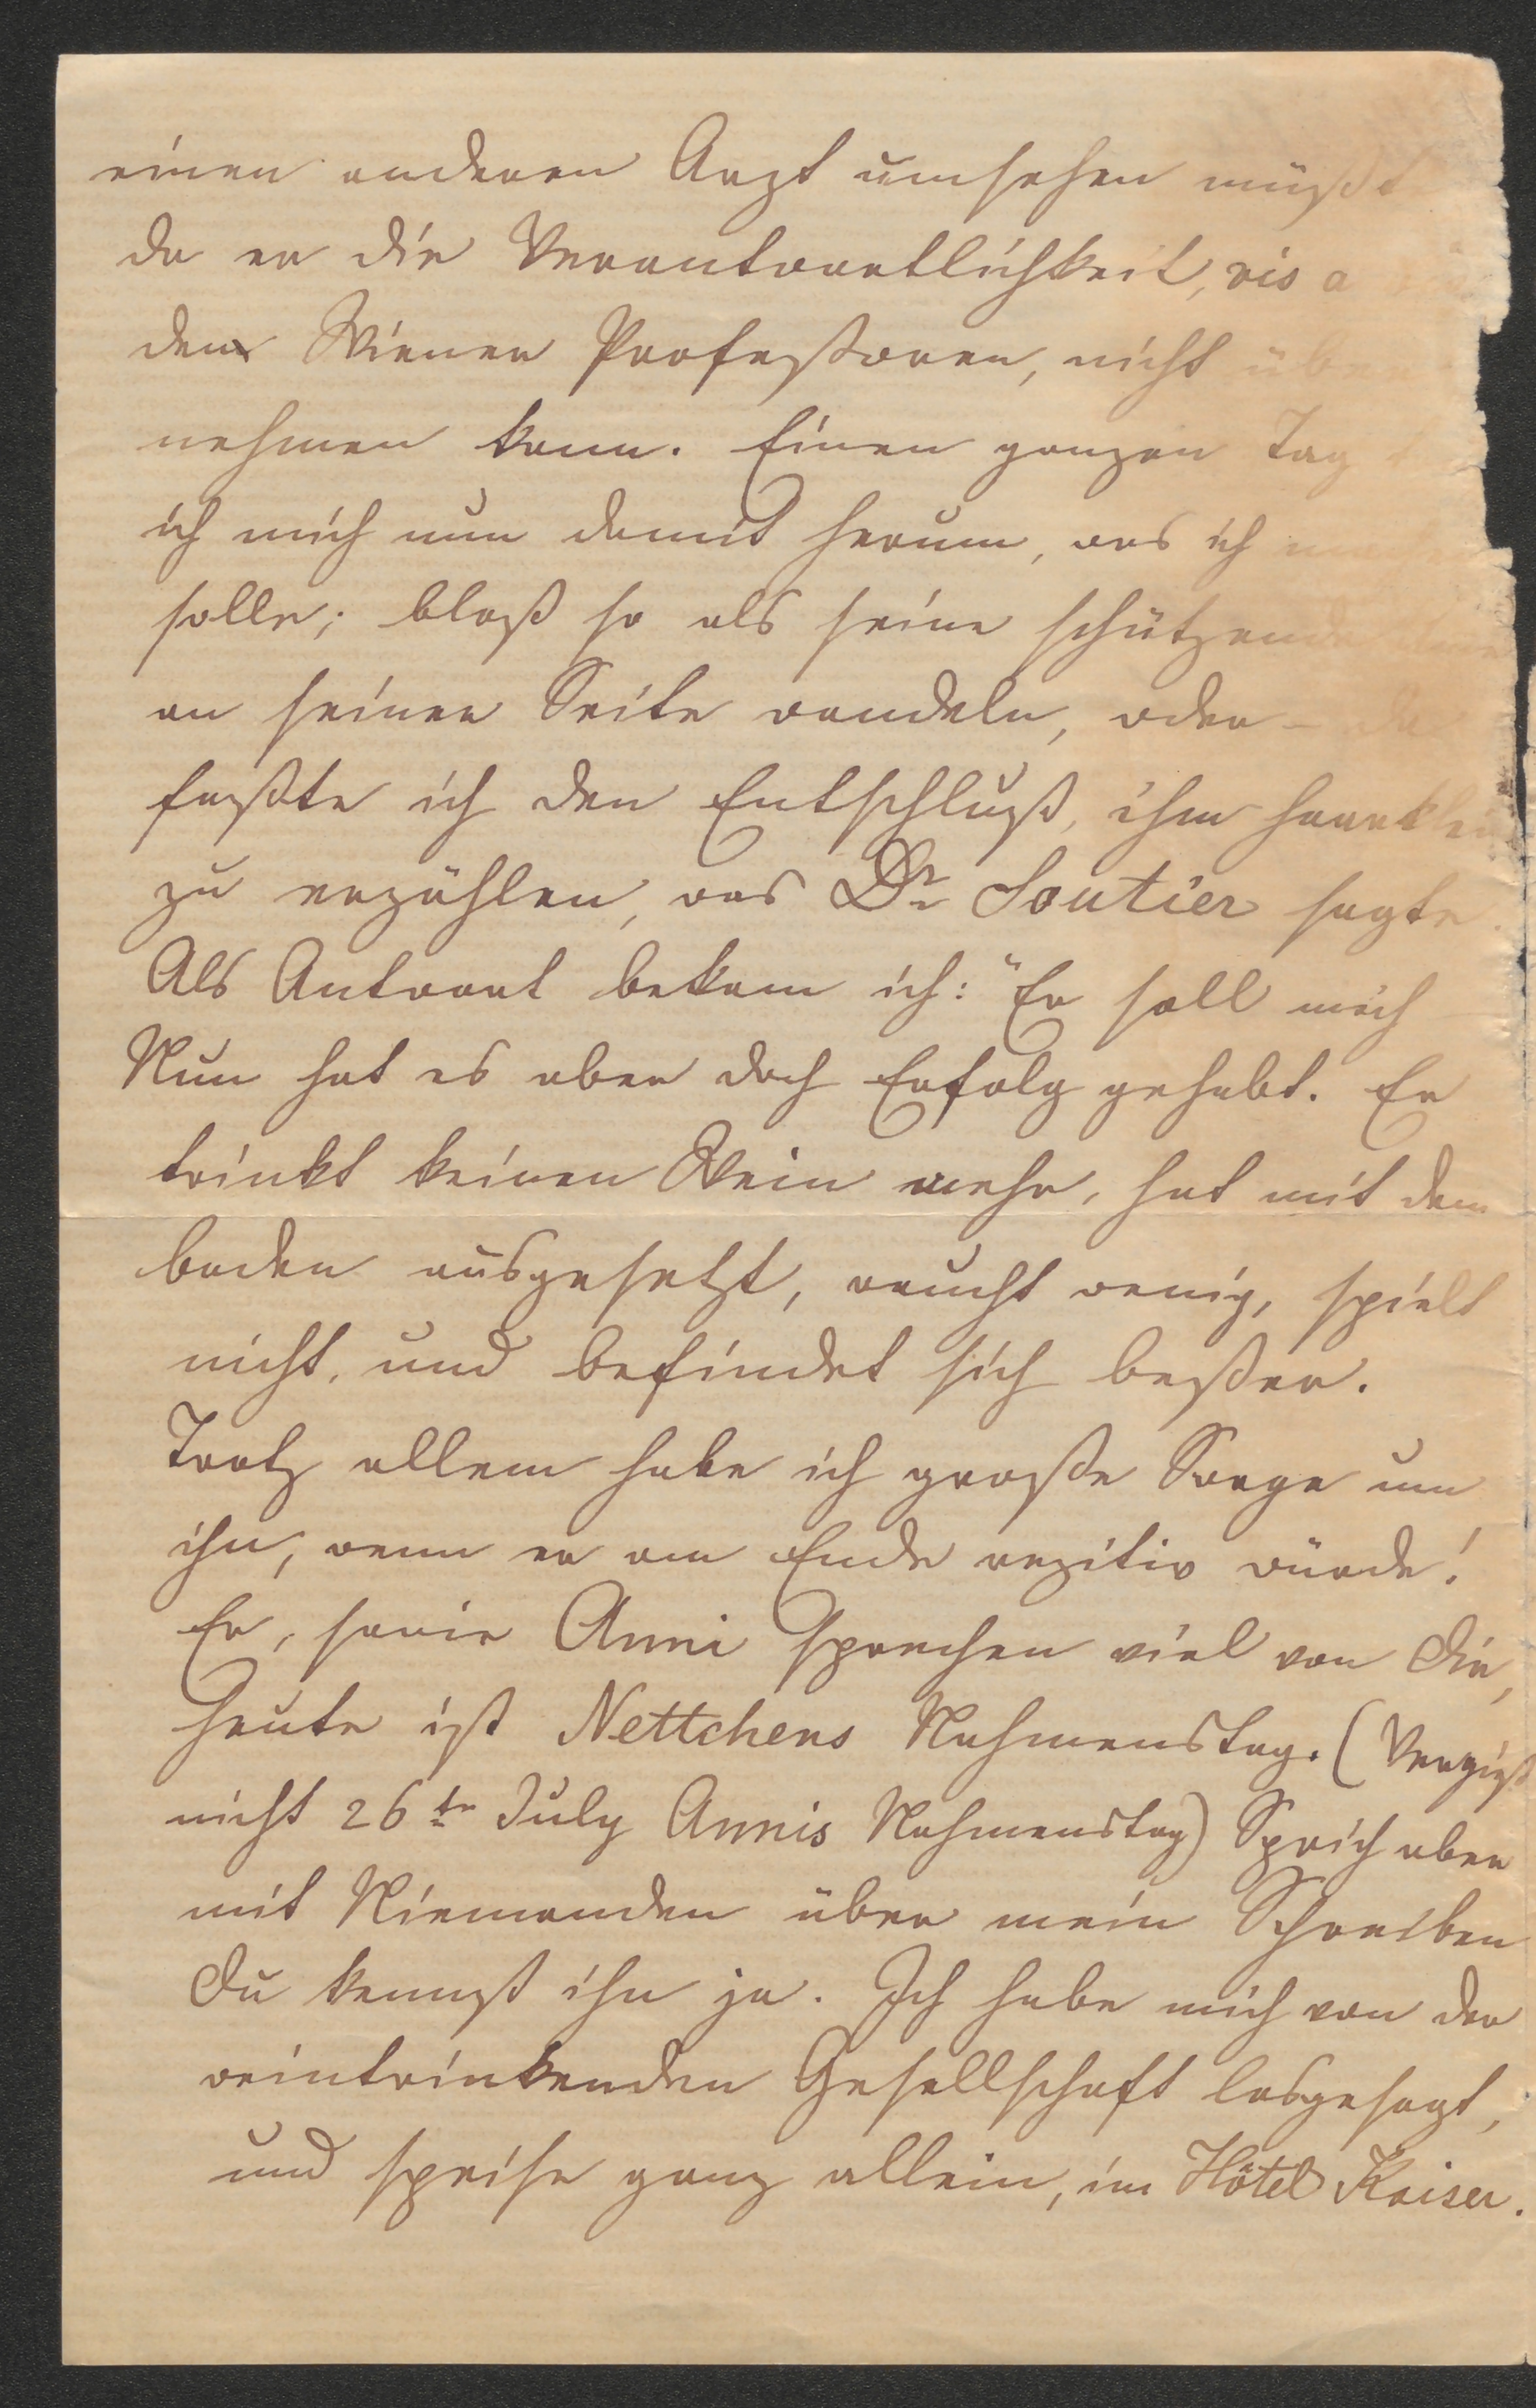 einen anderen Arzt umsehen müßt
da er die Verantwortlichkeit, vis a
den Wiener Profeßoren, nicht über
nehmen kann. Einen ganzen Tag
ich mich nun damit herum, was ich
solle; bloß so als seine schützende
an seiner Seite wandeln, oder – da
faßte ich den Entschluß, ihm haarklein
zu erzählen, was Dr Soutier sagte.
Als Antwort bekam ich: "Er soll mich –
Nun hat es aber doch Erfolg gehabt. Er
trinkt keinen Wein mehr, hat mit dem
baden ausgesetzt, raucht wenig, spielt
nicht, und befindet sich beßer.
Trotz allem habe ich große Sorge um
ihn, wenn er am Ende rezitiv würde!
Er, sowie Anni sprechen viel von Dir,
heute ist Nettchens Nahmenstag. (Vergiß
nicht 26te July Annis Nahmenstag) Sprich aber
mit Niemanden über mein Schreiben
Du kennst ihn ja. Ich habe mich von der
weintrinkenden Gesellschaft losgesagt,
und speise ganz allein, im Hôtel Kaiser.